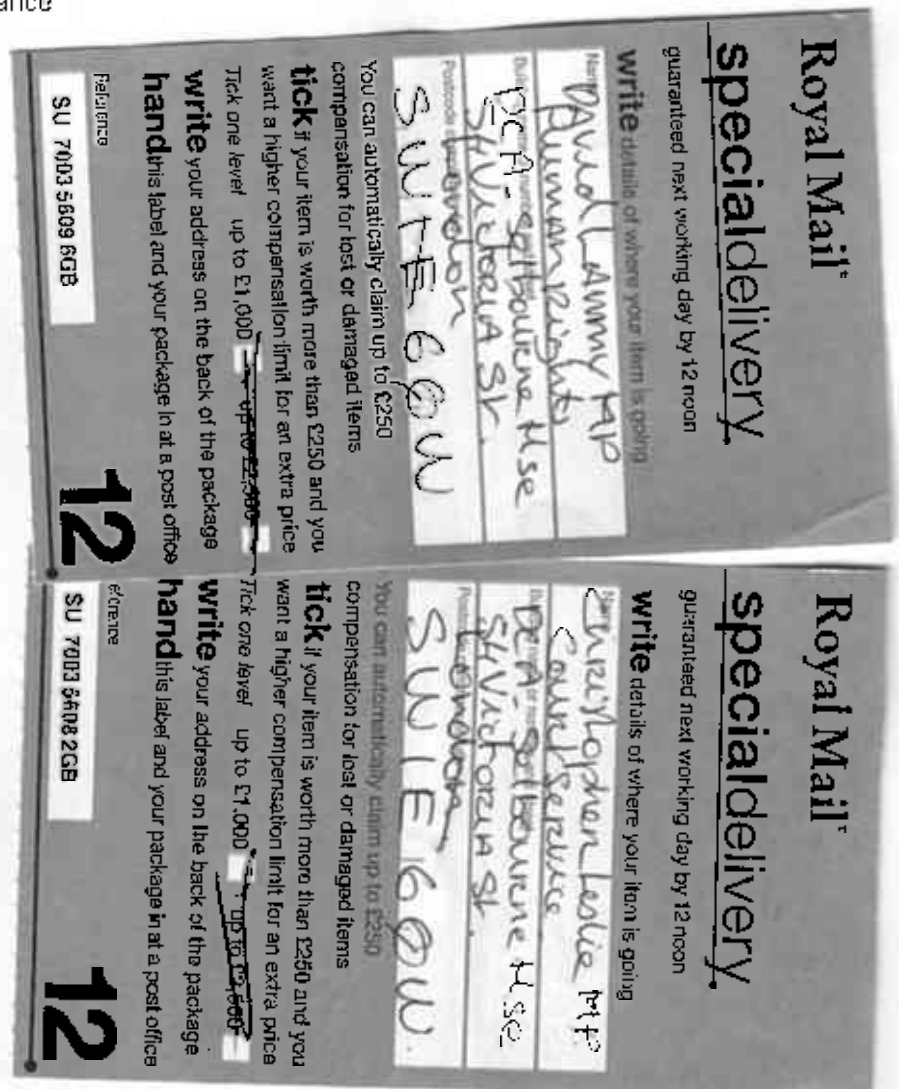 ance
Royal Mail
specialdelivery
guaranteed next working day by 12 noon
write details of where your item is going
Name
DAVID LAMMY MP
Human Rights
DCA - Selbourne Hse
54 Victoria St.
Postcode
London
SW1E 6QW
You can automatically claim up to £250
compensation for lost or damaged items
tick if your item is worth more than £250 and you
want a higher compensation limit for an extra price
Tick one level up to £1,000 up to £2,500
write your address on the back of the package
hand this label and your package in at a post office
Reference
SU 7003 5609 6GB
12
Royal Mail
specialdelivery
guaranteed next working day by 12 noon
write details of where your item is going
Name
Christopher Leslie MP
Court Service
DCA - Selbourne Hse
54 Victoria St.
London
SW1E 6QW.
You can automatically claim up to £250
compensation for lost or damaged items
tick if your item is worth more than £250 and you
want a higher compensation limit for an extra price
Tick one level up to £1,000 up to £2,500
write your address on the back of the package
hand this label and your package in at a post office
eference
SU 7003 5608 2GB
12